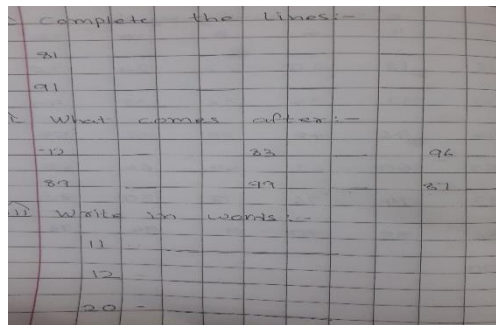 Complete the Lines:-
81
91
What comes after:-
72 — 83 — 96
89 — 99 — 87
iii Write in words:-
11 -
12
20 -